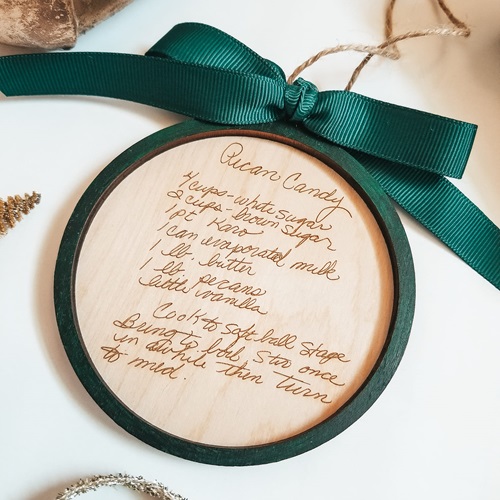 Pecan Candy
4 cups - white sugar
2 cups - brown sugar
1 pt Karo
1 can evaporated milk
1 lb. butter
1 lb. pecans
little vanilla
Cook to soft ball stage
Bring to boil, stir once
in awhile then turn
to med.